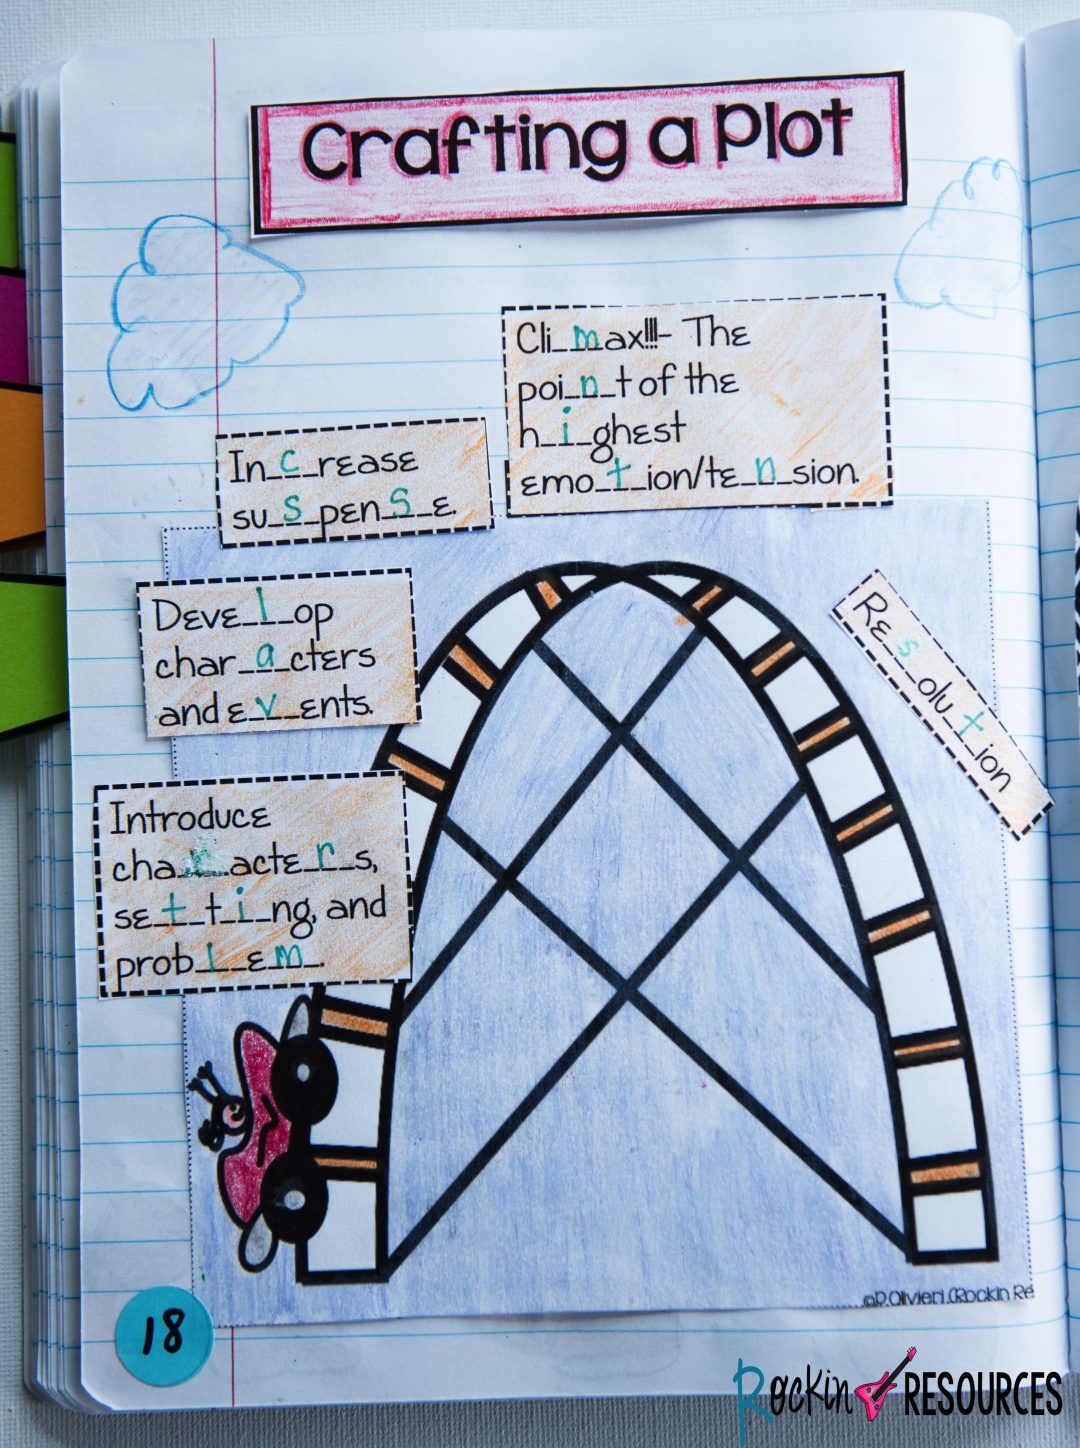 Crafting a Plot
Cli_m_ax!!!- The
poi_n_t of the
h_i_ghest
emo_t_ion/te_n_sion.
In_c_rease
su_s_pen_s_e.
Deve_l_op
char_a_cters
and e_v_ents.
Re_s_olu_t_ion
Introduce
cha_r_acte_r_s,
se_t_t_i_ng, and
prob_l_e_m_.
18
©P.Olivieri (Rockin Re
Rockin RESOURCES